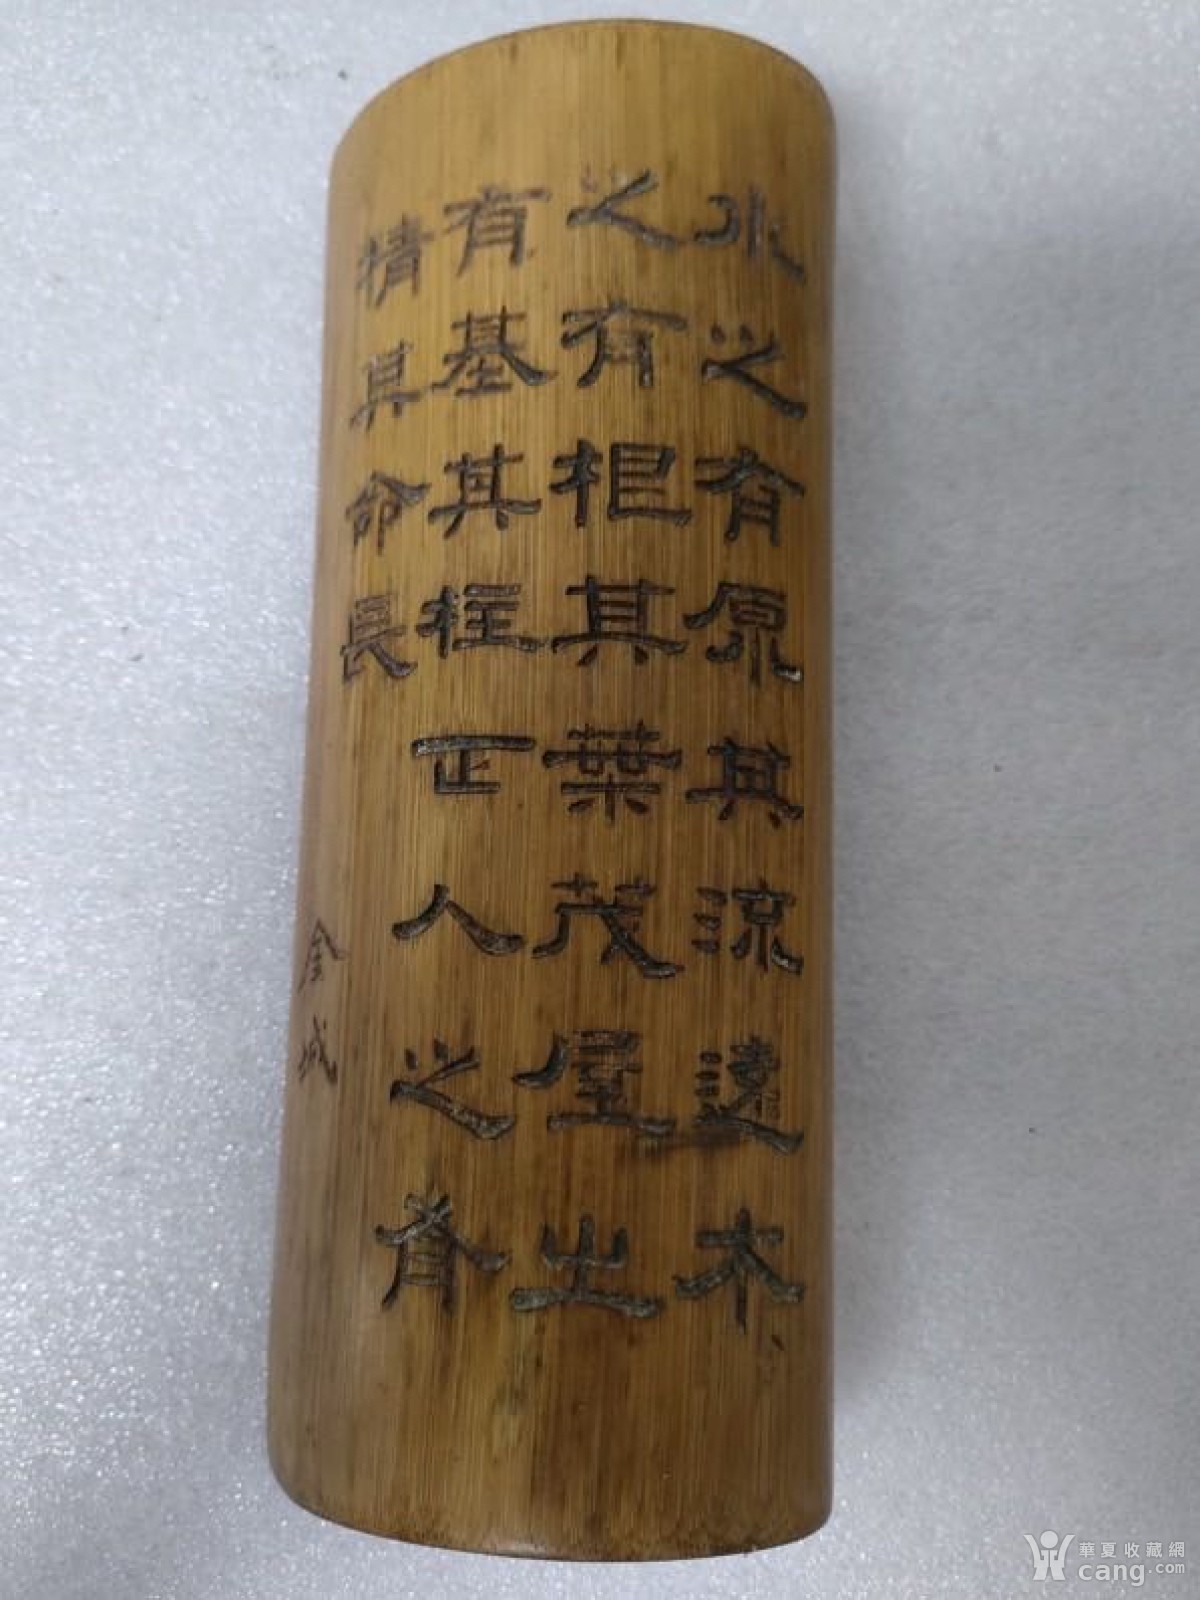 水之有原其流遠木
之有根其葉茂屋之
有基其柱正人之有
精其命長
金城
華夏收藏網
cang.com